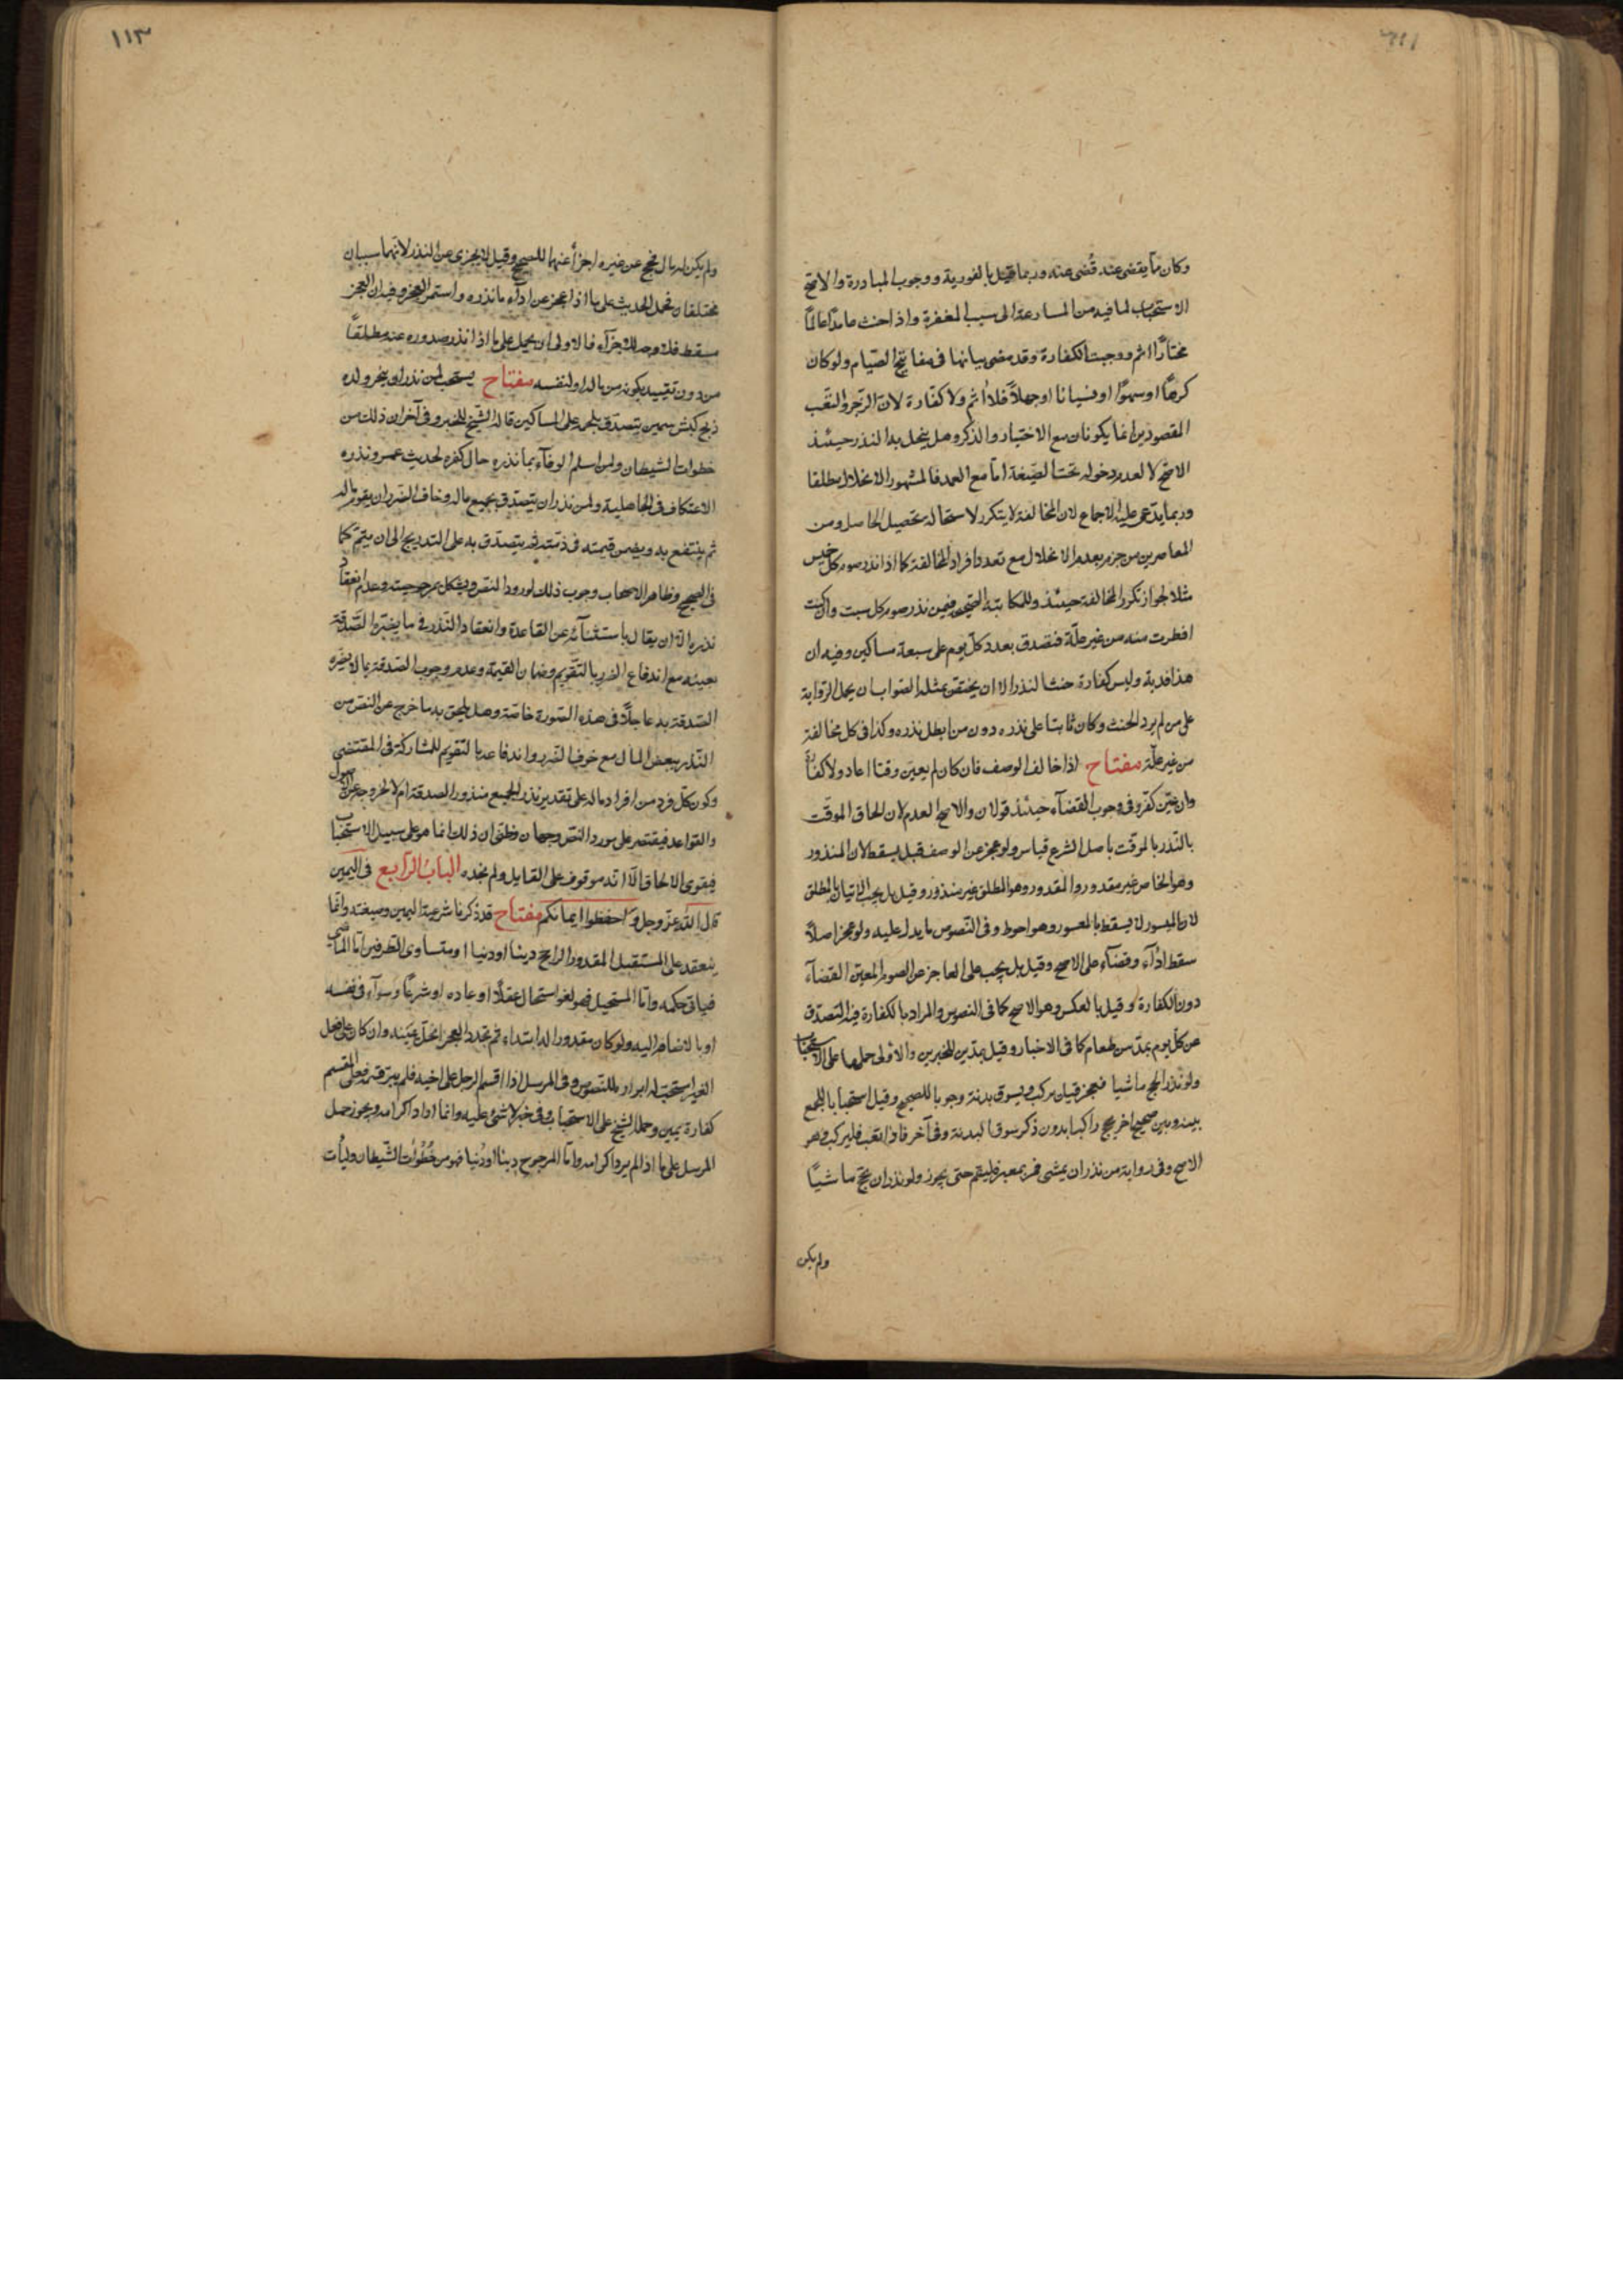 وكان مما يقضى عنه قُضى عنه وربما قيل بالفورية ووجوب المبادرة والاصح
الاستحباب لما فيه من المسارعة الى سبب المغفرة واذا حنث عامدًا عالمًا
مختارًا اثم ووجبت الكفارة وقد مضى بيانها فى مفاتيح الصيام ولو كان
كرهًا او سهوًا او نسيانا او جهلًا فلا اثم ولا كفارة لان الزجر والتعب
المقصودين انما يكونان مع الاختيار والذكر وهل ينحل به النذر حينئذ
الاصح لا لعدم دخوله تحت الصيغة اما مع العمد فالمشهور الانحلال مطلقا
وربما يدعى عليه الاجماع لان المخالفة لا يتكرر لاستحالة تحصيل الحاصل ومن
المعاصرين من جزم بعدم الانحلال مع تعدد افراد المخالفة كما اذا نذر صوم كل خميس
مثلا لجواز تكرر المخالفة حينئذ وللمكاتبة الصحيحة فيمن نذر صوم كل سبت وان كنت
افطرت منه من غير علة فتصدق بعدد كل يوم على سبعة مساكين وفيه ان
هذا فدية وليس كفارة حنث النذر الا ان يختص بمثله الصواب ان يحمل الرواية
على من لم يرد الحنث وكان ثابتا على نذره دون من ابطل نذره وكذا فى كل مخالفة
من غير علة مفتاح اذا خالف الوصف فان كان لم يعين وقتا اعاد ولا كفارة
وان عين كفر وفى وجوب القضآء حينئذ قولان والاصح العدم لان الحاق الموقت
بالنذر بالموقت باصل الشرع قياس ولو عجز عن الوصف قيل يسقط لان المنذور
وهو الخاص غير مقدور والمقدور وهو المطلق غير منذور وقيل بل يجب الاتيان بالمطلق
لان الميسور لا يسقط بالمعسور وهو احوط وفى النصوص ما يدل عليه ولو عجز اصلًا
سقط ادآء وقضآء على الاصح وقيل بل يجب على العاجز عن الصوم المعين القضآء
دون الكفارة وقيل بالعكس وهو الاصح كما فى النصوص والمراد بالكفارة فيه التصدق
عن كل يوم بمد من طعام كما فى الاخبار وقيل بمدين للخبرين والاولى حملها على الاستحباب
ولو نذر الحج ماشيا فعجز قيل يركب ويسوق بدنة وجوبا للصحيح وقيل استحبابا للجمع
بينه وبين صحيح اخر يحج راكبا بدون ذكر سوق البدنة وفى آخر فاذا تعب فليركب وهو
الاصح وفى رواية من نذر ان يمشى فمر بمعبر فليقم حتى يجوز ولو نذر ان يحج ماشيًا
ولم يكن
١١٣
ولم يكن له مال فحج عن غيره اجزأ عنهما للصحيح وقيل لا يجزى عن النذر لانهما سببان
مختلفان فحمل الحديث على ما اذا عجز عن ادآء ما نذره واستمر العجز وفيه ان العجز
مسقط فلا وجه للاجزآء فالاولى ان يحمل على ما اذا نذر صدوره عنه مطلقًا
من دون تقييد بكونه من ماله او لنفسه مفتاح يستحب لمن نذر ان ينحر ولده
ذبح كبش سمين يتصدق بلحمه على المساكين قاله الشيخ للخبر وفى آخر ان ذلك من
خطوات الشيطان ولمن اسلم الوفآء بما نذره حال كفره لحديث عمر ونذره
الاعتكاف فى الجاهلية ولمن نذر ان يتصدق بجميع ماله وخاف الضرر ان يقوم ماله
ثم ينتفع به ويضمن قيمته فى ذمته ثم يتصدق به على التدريج الى ان يتم كما
فى الصحيح وظاهر الاصحاب وجوب ذلك لورود النص ويشكل بمرجوحيته وعدم انعقاد
نذره الا ان يقال باستثنآئه عن القاعدة وانعقاد النذر فى ما يضر الصدقة
بعينه مع اندفاع الضرر بالتقويم وضمان القيمة وعدم وجوب الصدقة بما لا يضره
الصدقة به عاجلًا فى هذه الصورة خاصة وهل يلحق به ما خرج عن النص من
النذر ببعض المال مع خوف الضرر واندفاعه بالتقويم للمشاركة فى المقتضى
وكون كل فرد من افراد ماله على تقدير نذر الجميع منذور الصدقة ام لا لخروجه عن الاصول
والقواعد فيقتصر على مورد النص وجهان وظنى ان ذلك انما هو على سبيل الاستحباب
فيقوى الالحاق الا انه موقوف على القايل ولم نجده الباب الرابع فى اليمين
قال الله عز وجل واحفظوا ايمانكم مفتاح قد ذكرنا شرعية اليمين وصيغته وانما
ينعقد على المستقبل المقدور الراجح دينا او دنيا او متساوى الطرفين اما الماضى
فياتى حكمه واما المستحيل فهو لغو استحال عقلًا او عادة او شرعًا وسوآء فى نفسه
او بالانضمام اليه ولو كان مقدورا له ابتداء ثم تجدد العجز انحل عينه وان كان على فعل
الغير استحب له ابراره للنصوص وفى المرسل اذا اقسم الرجل على اخيه فلم يبر قسمه فعلى المقسم
كفارة يمين وحمله الشيخ على الاستحباب وفى خبر لا شئ عليه وانما اراد اكرامه ويجوز حمل
المرسل على ما اذا لم يرد اكرامه واما المرجوح دينا او دنيا فهو من خُطُوٰات الشيطان وليأت